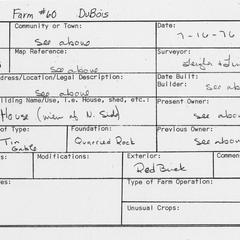 Farm #60 DuBois
Community or Town: Date:
see above 7-16-76
Map Reference: Surveyor:
see above
dress/Location/Legal Description: Date Built:
see above Builder: see ab
ilding Name/Use, i.e. House, shed, etc.: Present Owner:
House (view of N. Side) see abo
of Type: Foundation: Previous Owner:
Tin Gable Quarried Rock see abo
s: Modifications: Exterior: Comme
Red Brick
Type of Farm Operation:
Unusual Crops: